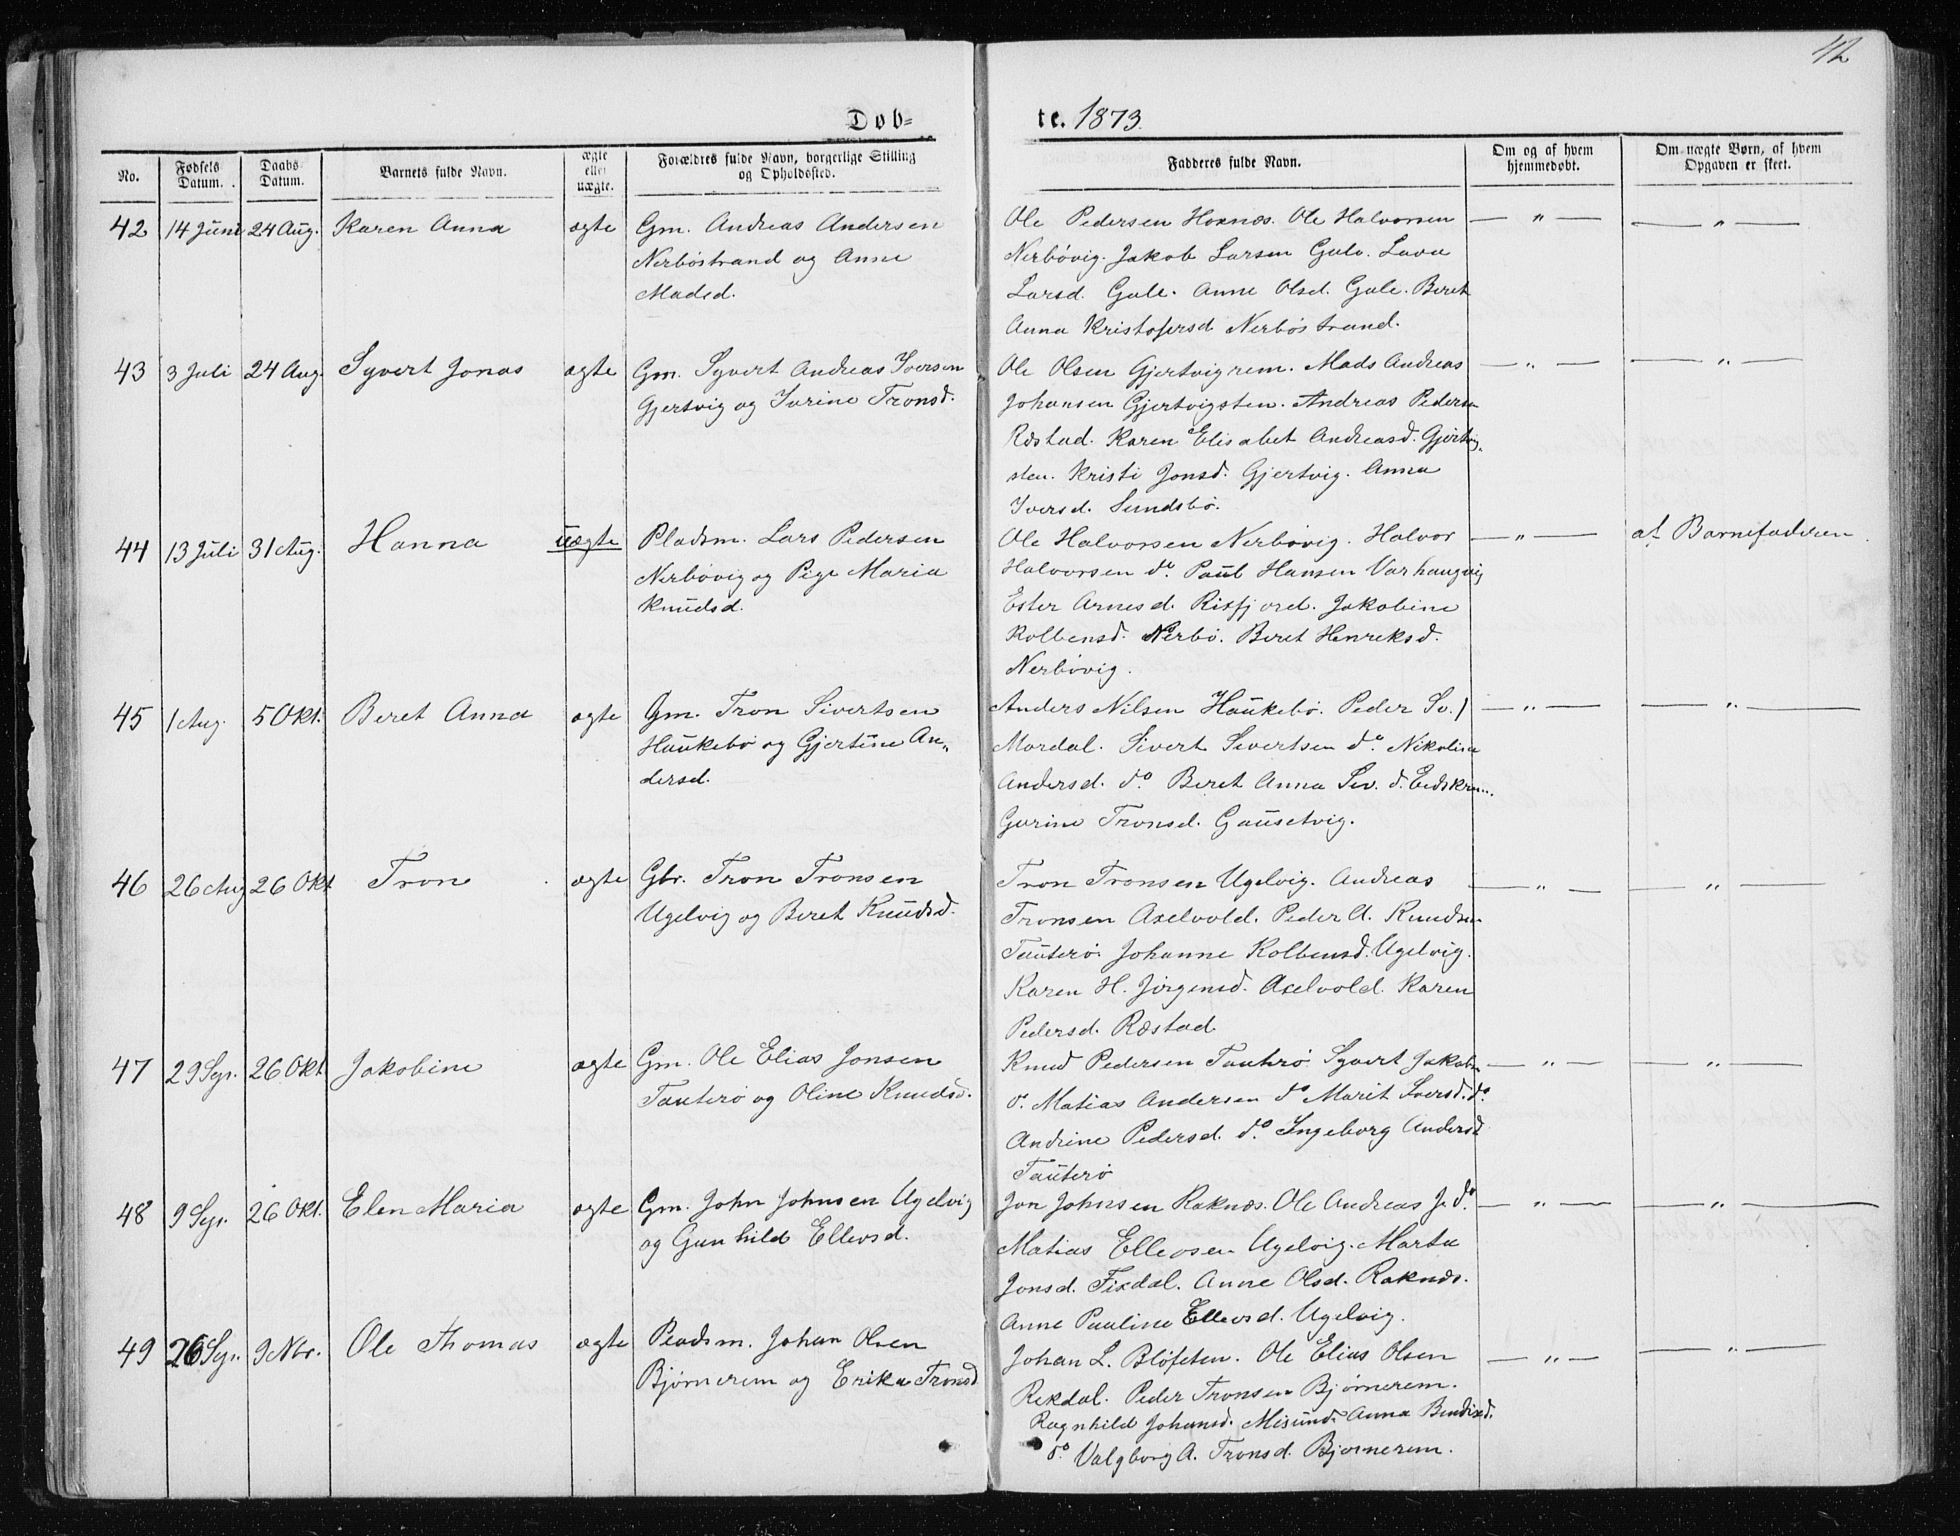 42
Døb=
te. 1873.
No.
Fødsels Datum.
Daabs Datum.
Barnets fulde Navn.
ægte eller uægte.
Forældres fulde Navn, borgerlige Stilling og Opholdssted.
Fadderes fulde Navn.
Om og af hvem hjemmedøbt.
Om uægte Børn, af hvem Opgaven er skeet.
42 14 Juni 24 Aug. Karen Anna ægte Gm. Andreas Andersen
Nerbøstrand og Anne
Madsd.
Ole Pedersen Hoxnæs. Ole Halvorsen — " — — " —
Nerbøvig. Jakob Larsen Gule. Lava
Larsd. Gule. Anne Olsd. Gule. Beret
Anna Kristofersd. Nerbøstrand.
43 3 Juli 24 Aug. Syvert Jonas ægte Gm. Syvert Andreas Iversen
Gjertvig og Iverine Tronsd.
Ole Olsen Gjertvigrem. Mads Andreas — " — — " —
Johansen Gjertvigsten. Andreas Pedersen
Ræstad. Karen Elisabet Andreasd. Gjertvig-
sten. Kristi Jonsd. Gjertvig. Anna
Iversd. Sundsbø.
44 13 Juli 31 Aug. Hanna uægte Pladsm. Lars Pedersen
Nerbøvig og Pige Maria
Knudsd.
Ole Halvorsen Nerbøvig. Halvor — " — af Barnefaderen.
Halvorsen do. Paul Hansen Varhaugvig
Ester Arnesd. Rixfjord. Jakobine
Kolbensd. Nerbø. Beret Henriksd.
Nerbøvig.
45 1 Aug. 5 Okt. Beret Anna ægte Gm. Tron Sivertsen
Haukebø og Gjertine An„
dersd.
Anders Nilsen Haukebø. Peder Sv. / — " — — " —
Mordal. Sivert Sivertsen do. Nikolina
Andersd. do. Beret Anna Siv. d. Eidskrem.
Gurine Tronsd. Gausetvig.
46 26 Aug 26 Okt Tron ægte Gbr. Tron Tronsen
Ugelvig og Beret Knudsd.
Tron Tronsen Ugelvig. Andreas — " — — " —
Tronsen Axelvold. Peder A. Knudsen
Tauterø. Johanne Kolbensd. Ugelvig.
Karen H. Jørgensd. Axelvold. Karen
Pedersd. Ræstad.
47 29 Sep. 26 Okt Jakobine ægte Gm. Ole Elias Jonsen
Tauterø og Oline Knudsd.
Knud Pedersen Tauterø Syvert Jakobs. — " — — " —
do. Matias Andersen do Marit Iversd. do.
Andrine Pedersd. do. Ingeborg Andersd
Tauterø
48 9 Sep. 26 Okt. Elen Maria ægte Gm. John Johnsen Ugelvig
og Gunhild Ellevsd.
Jon Johnsen Raknæs. Ole Andreas J. do. — " — — " —
Matias Ellevsen Ugelvig. Marta
Jonsd. Fixdal. Anne Olsd. Raknæs.
Anne Pauline Ellevsd. Ugelvig.
49 26 Sep. 9 Nbr. Ole Thomas ægte Pladsm. Johan Olsen
Bjørnerem og Erika Tronsd
Johan L. Bløfeten. Ole Elias Olsen — " — — " —
Rekdal. Peder Tronsen Bjørnerem.
Ragnhild Johansd. Misund. Anna Bendixd.
do. Valgborg A. Tronsd. Bjørnerem.